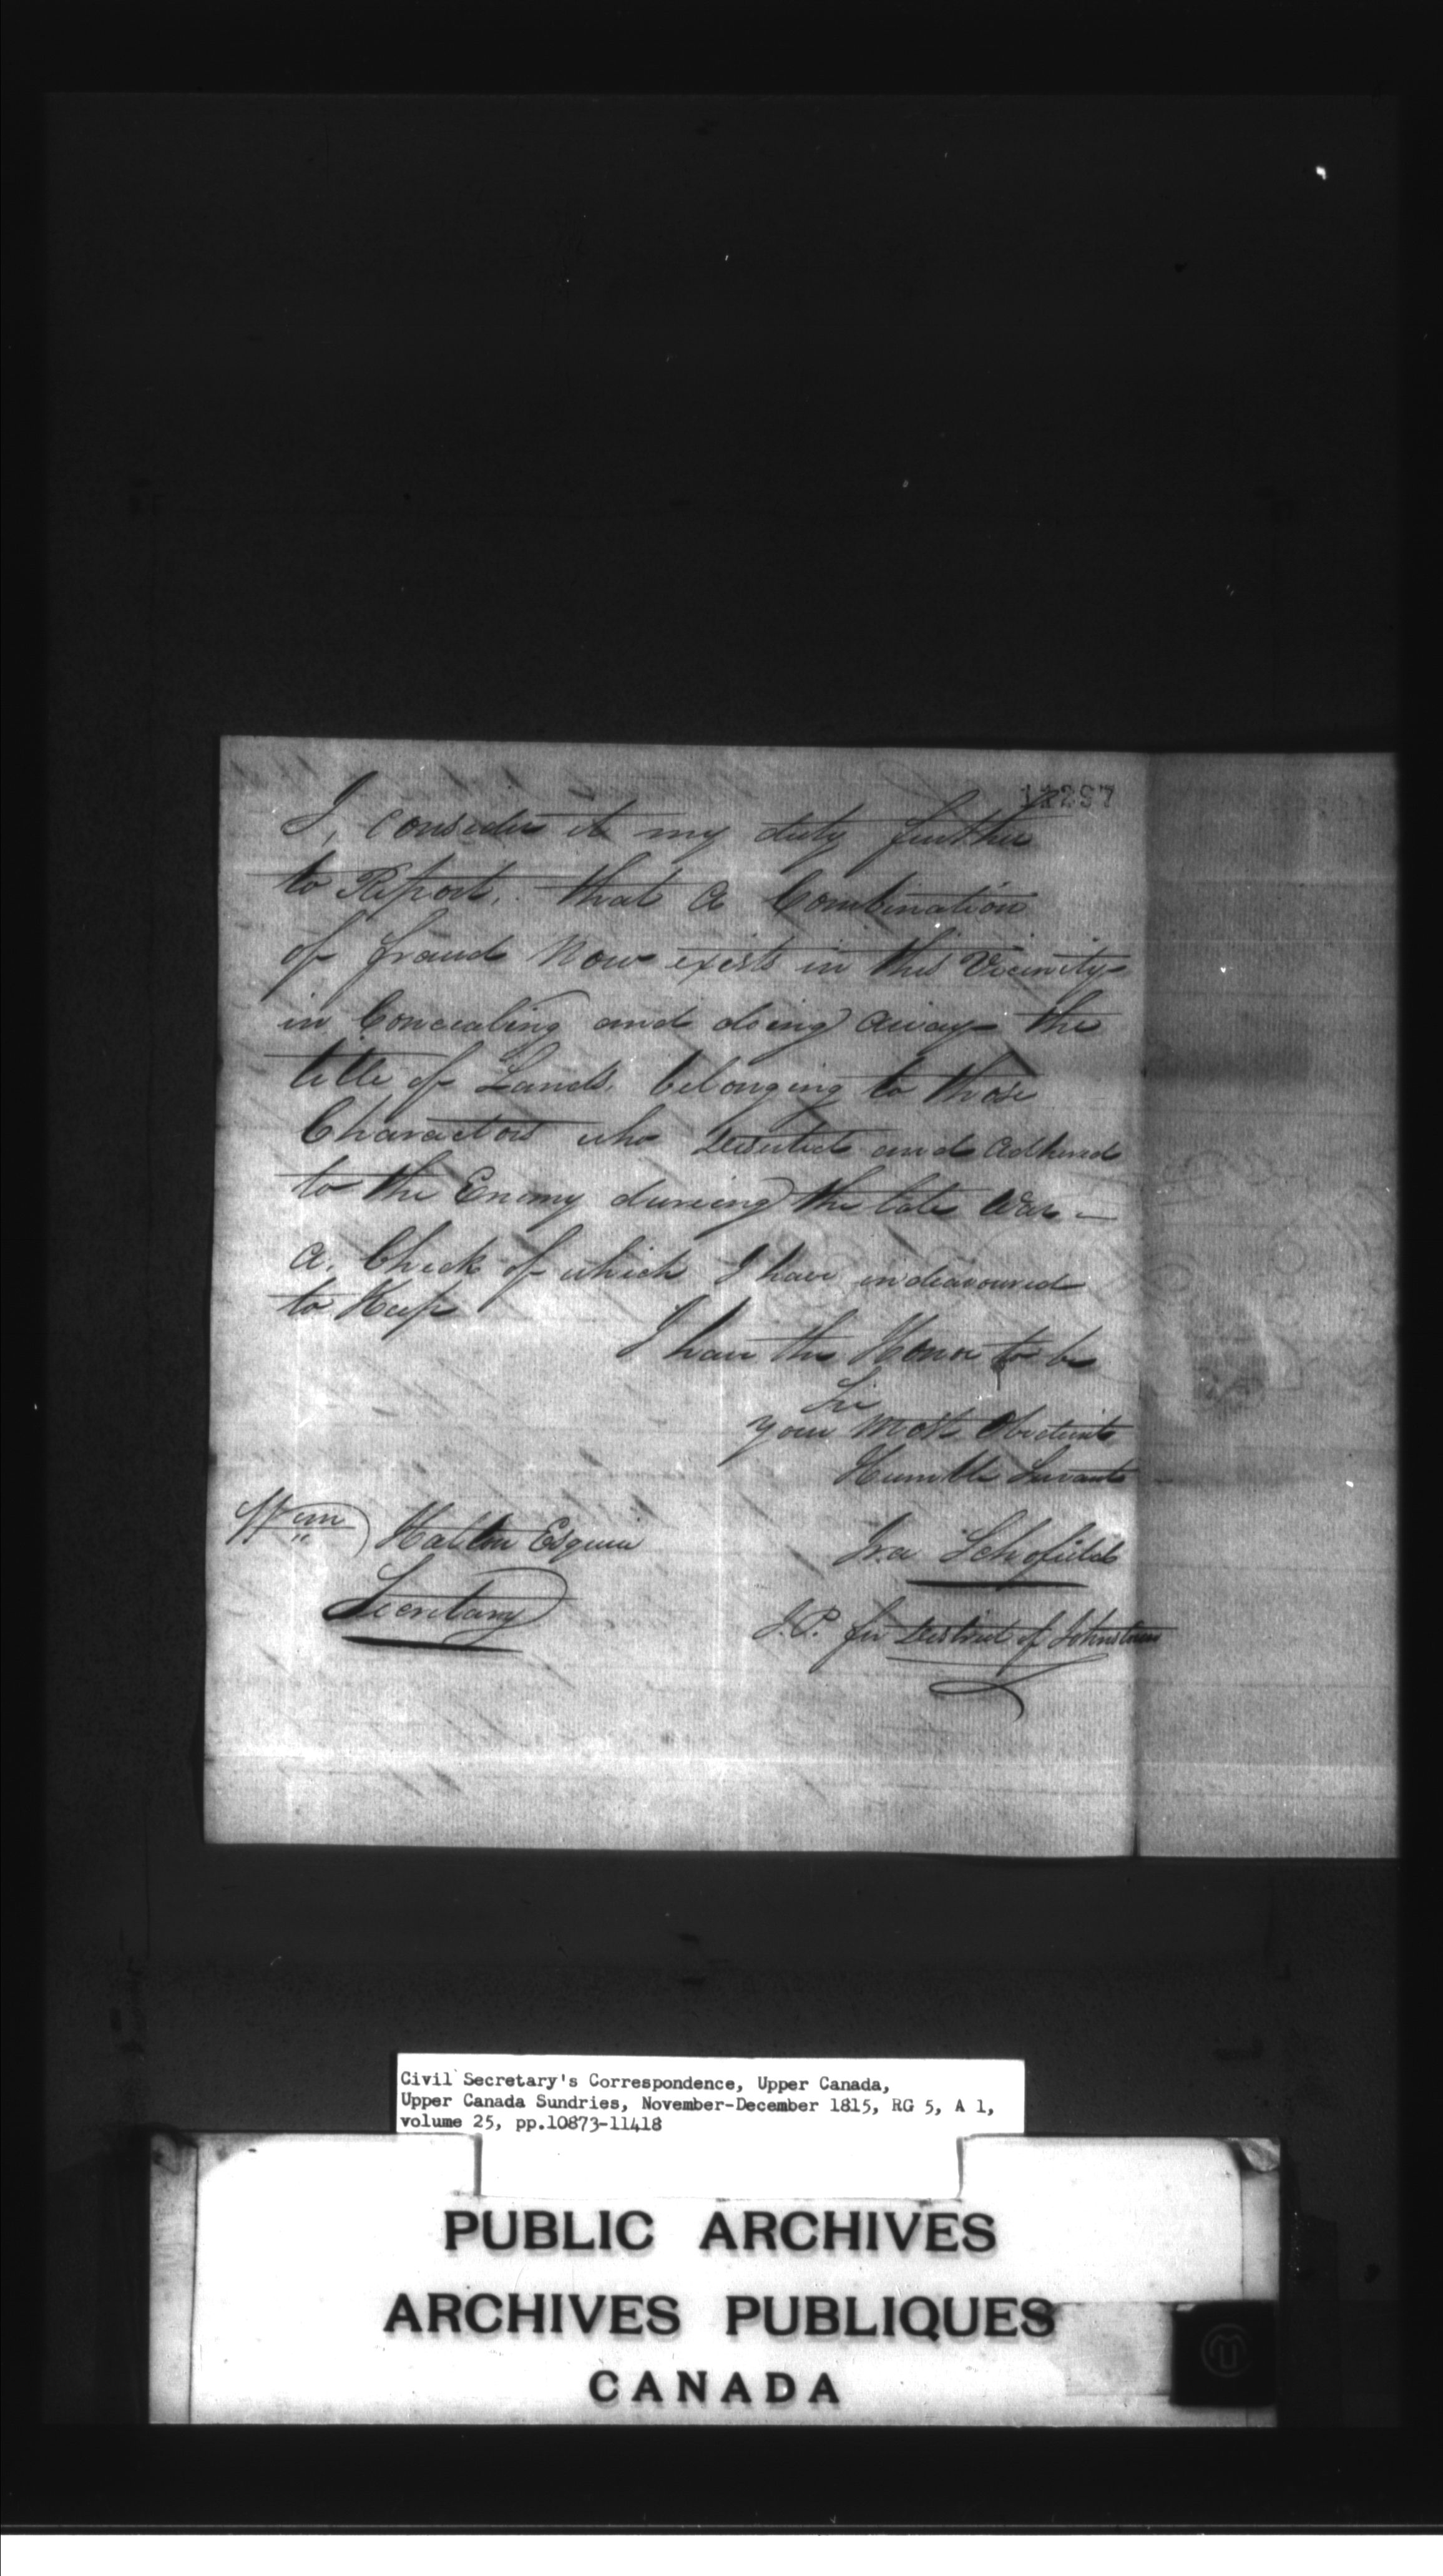 I, consider it my duty further
to Report, that a Combination
of fraud Now exists in this Vicinity
in Concealing and doing away the
title of Lands, belonging to those
Charactors who Deserted and adhered
to the Enemy dureing the late War —
a. Check of which I have indeavoured
to Keep
I have the Honor to be
Sir
your most Obedient
Humble Servant
Wm Halton Esquire
Secretary
Ira Schofield
J.P. for District of Johnstown
Civil Secretary's Correspondence, Upper Canada,
Upper Canada Sundries, November-December 1815, RG 5, A 1,
volume 25, pp.10873-11418
PUBLIC ARCHIVES
ARCHIVES PUBLIQUES
CANADA